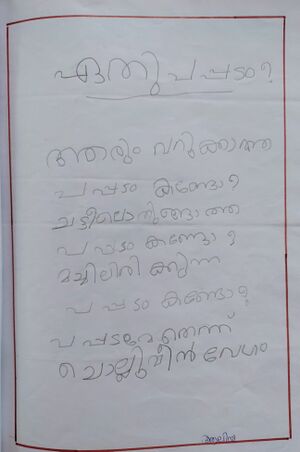 ഏതു പപ്പടം?
ആരും വറുക്കാത്ത
പപ്പടം കണ്ടോ?
ചട്ടീലൊതുങ്ങാത്ത
പപ്പടം കണ്ടോ?
മച്ചിലിരിക്കുന്ന
പപ്പടം കണ്ടോ?
പപ്പടമേതെന്ന്
ചൊല്ലുവിൻ വേഗം